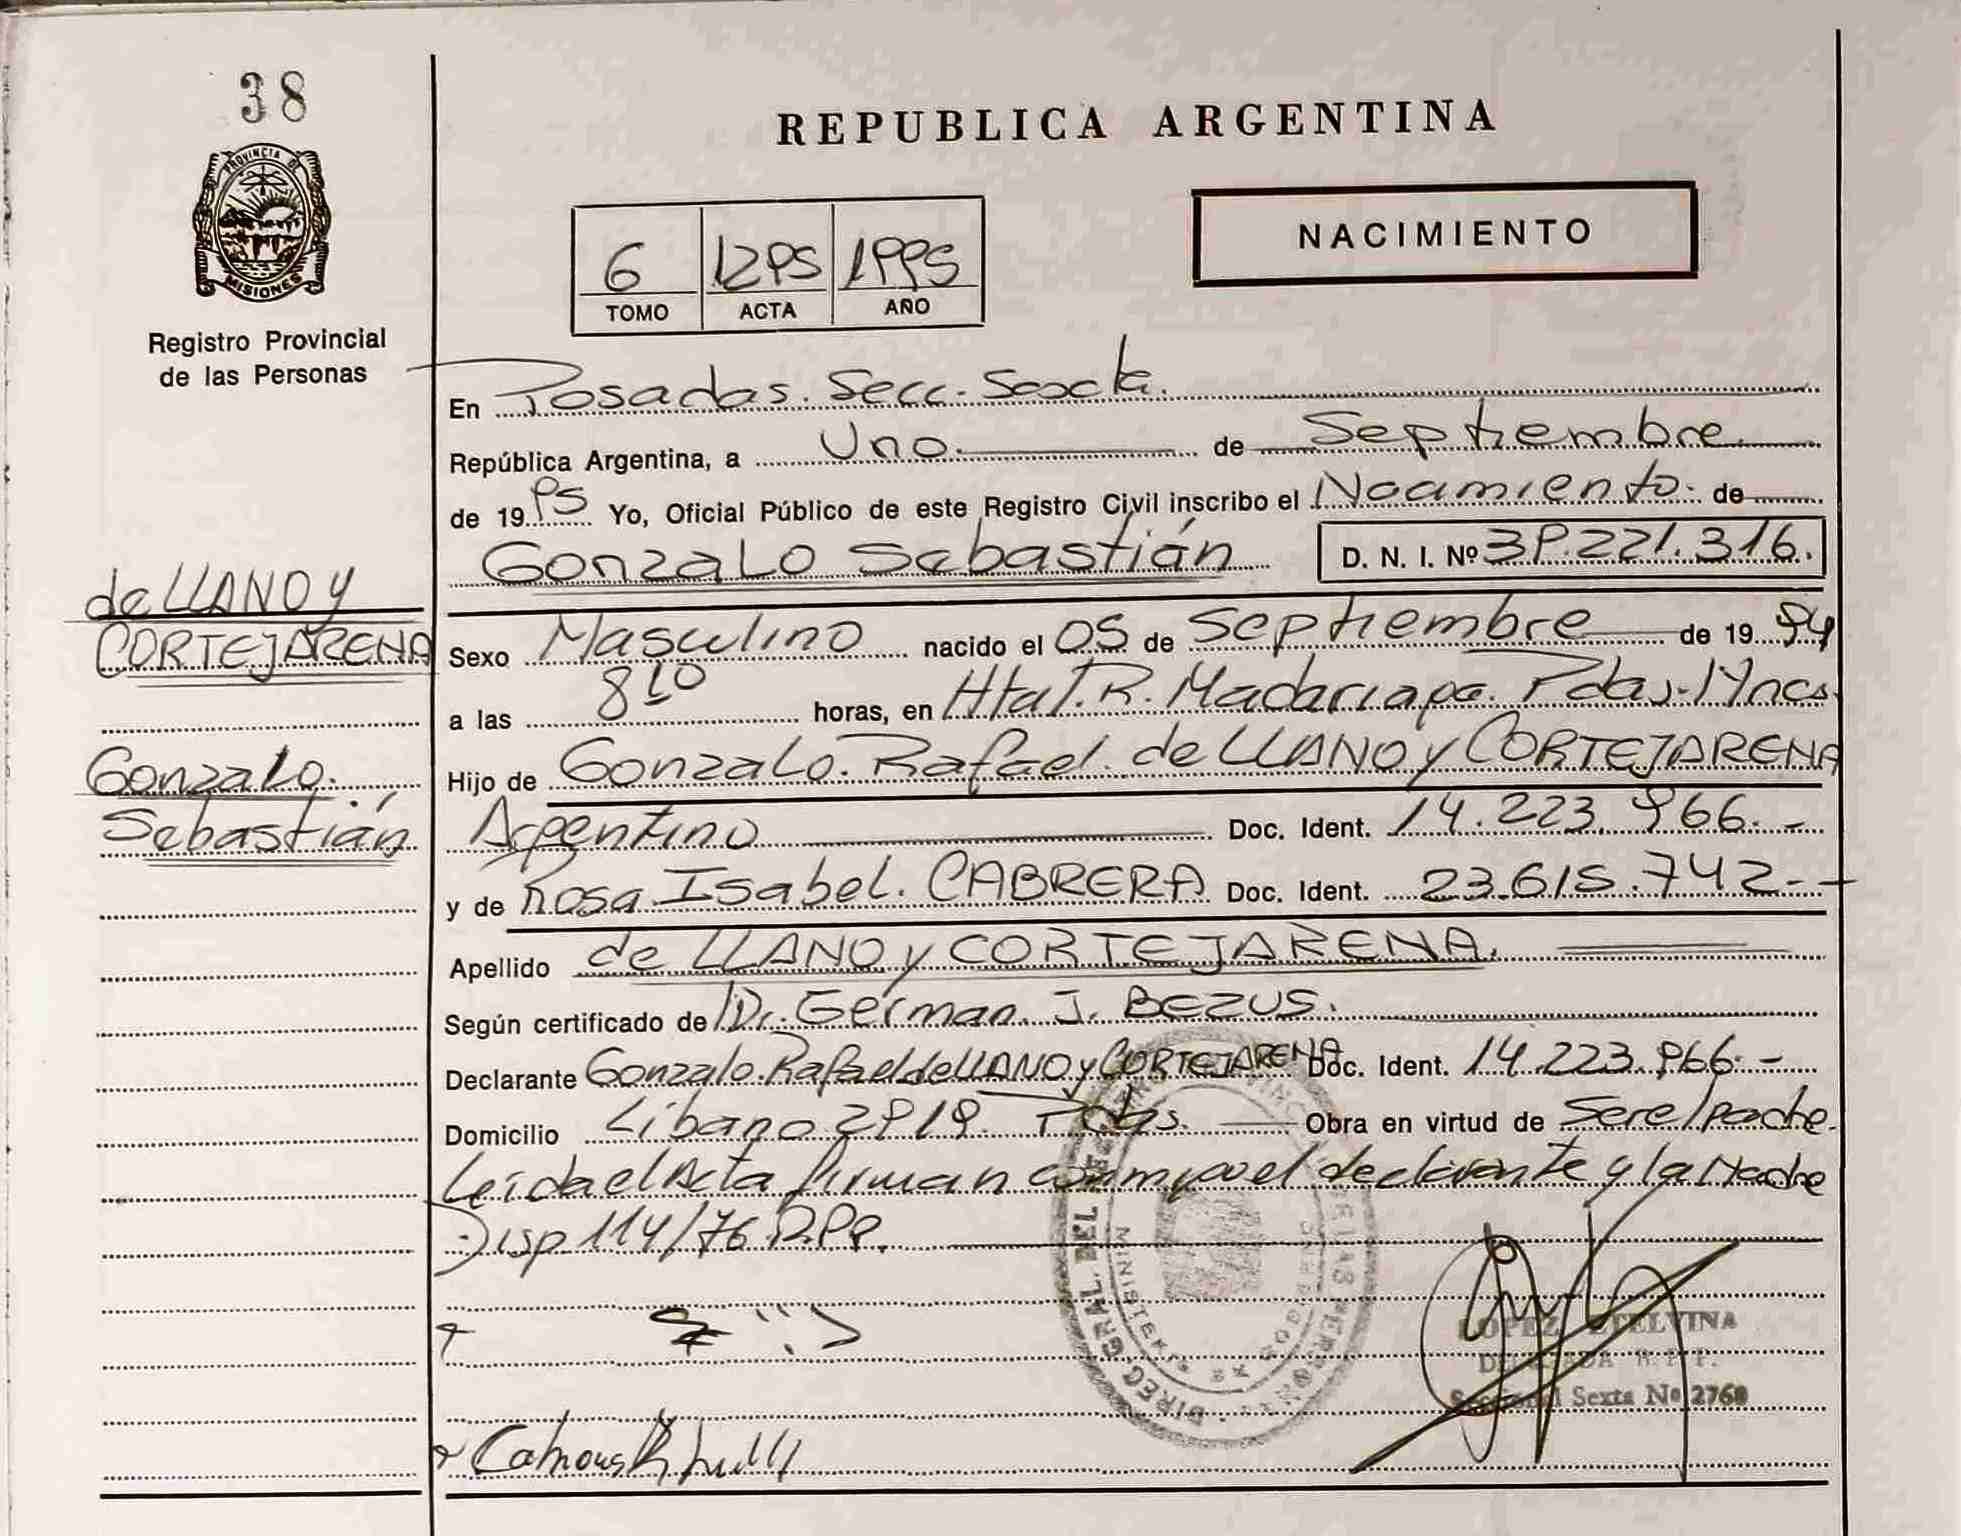 38
PROVINCIA DE
MISIONES
Registro Provincial
de las Personas
REPUBLICA ARGENTINA
NACIMIENTO
6 1295 1995
TOMO ACTA AÑO
En Posadas. Secc. Sexta.
República Argentina, a Uno de Septiembre
de 1995 Yo, Oficial Público de este Registro Civil inscribo el Nacimiento de
Gonzalo Sebastián D. N. I. Nº 39.221.316.
de LLANO y
CORTEJARENA
Gonzalo
Sebastián
Sexo Masculino nacido el 05 de Septiembre de 1994
a las 8 10 horas, en Htal. R. Madariaga. Pdas. Mnes.
Hijo de Gonzalo Rafael de LLANO y CORTEJARENA
Argentino Doc. Ident. 14.223.966.-
y de Rosa Isabel CABRERA Doc. Ident. 23.615.742.-
Apellido de LLANO y CORTEJARENA.
Según certificado de Dr. Germán J. BEZUS.
Declarante Gonzalo Rafael de LLANO y CORTEJARENA Doc. Ident. 14.223.966.-
Domicilio Líbano 2919 Pdas. Obra en virtud de Ser el padre.
Leída el Acta firman conmigo el declarante y la Madre
Disp. 114/76 R.P.P.
DIREC. GRAL. DEL
MINISTERIO
LOPEZ ETELVINA
DELEGADA R. P. P.
Seccional Sexta Nº 2760